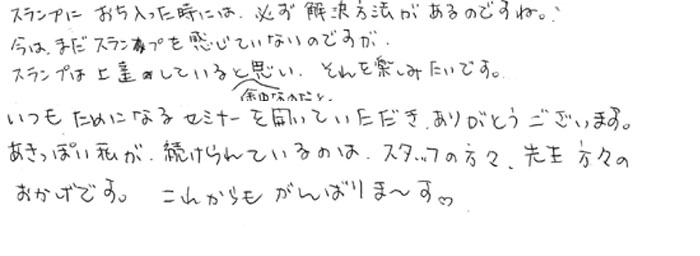 スランプに おち入った時には、必ず 解決方法が あるのですね。
今は、まだ スランプを 感じていないのですが、
スランプは上達していると思い、それを楽しみたいです。
いつも ためになる セミナーを 開いていただき、ありがとうございます。
あきっぽい私が、続けられているのは、スタッフの方々、先生方々の
おかげです。 これからも がんばりま〜す♡